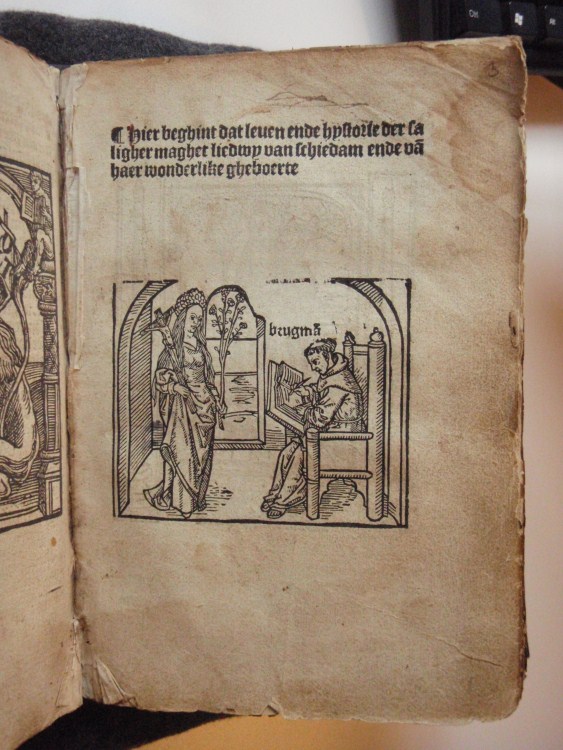 ¶ Hier beghint dat leuen ende hystorie der sa
ligher maghet liedwy van schiedam ende vā
haer wonderlike gheboerte
brugmā
3
Ctrl